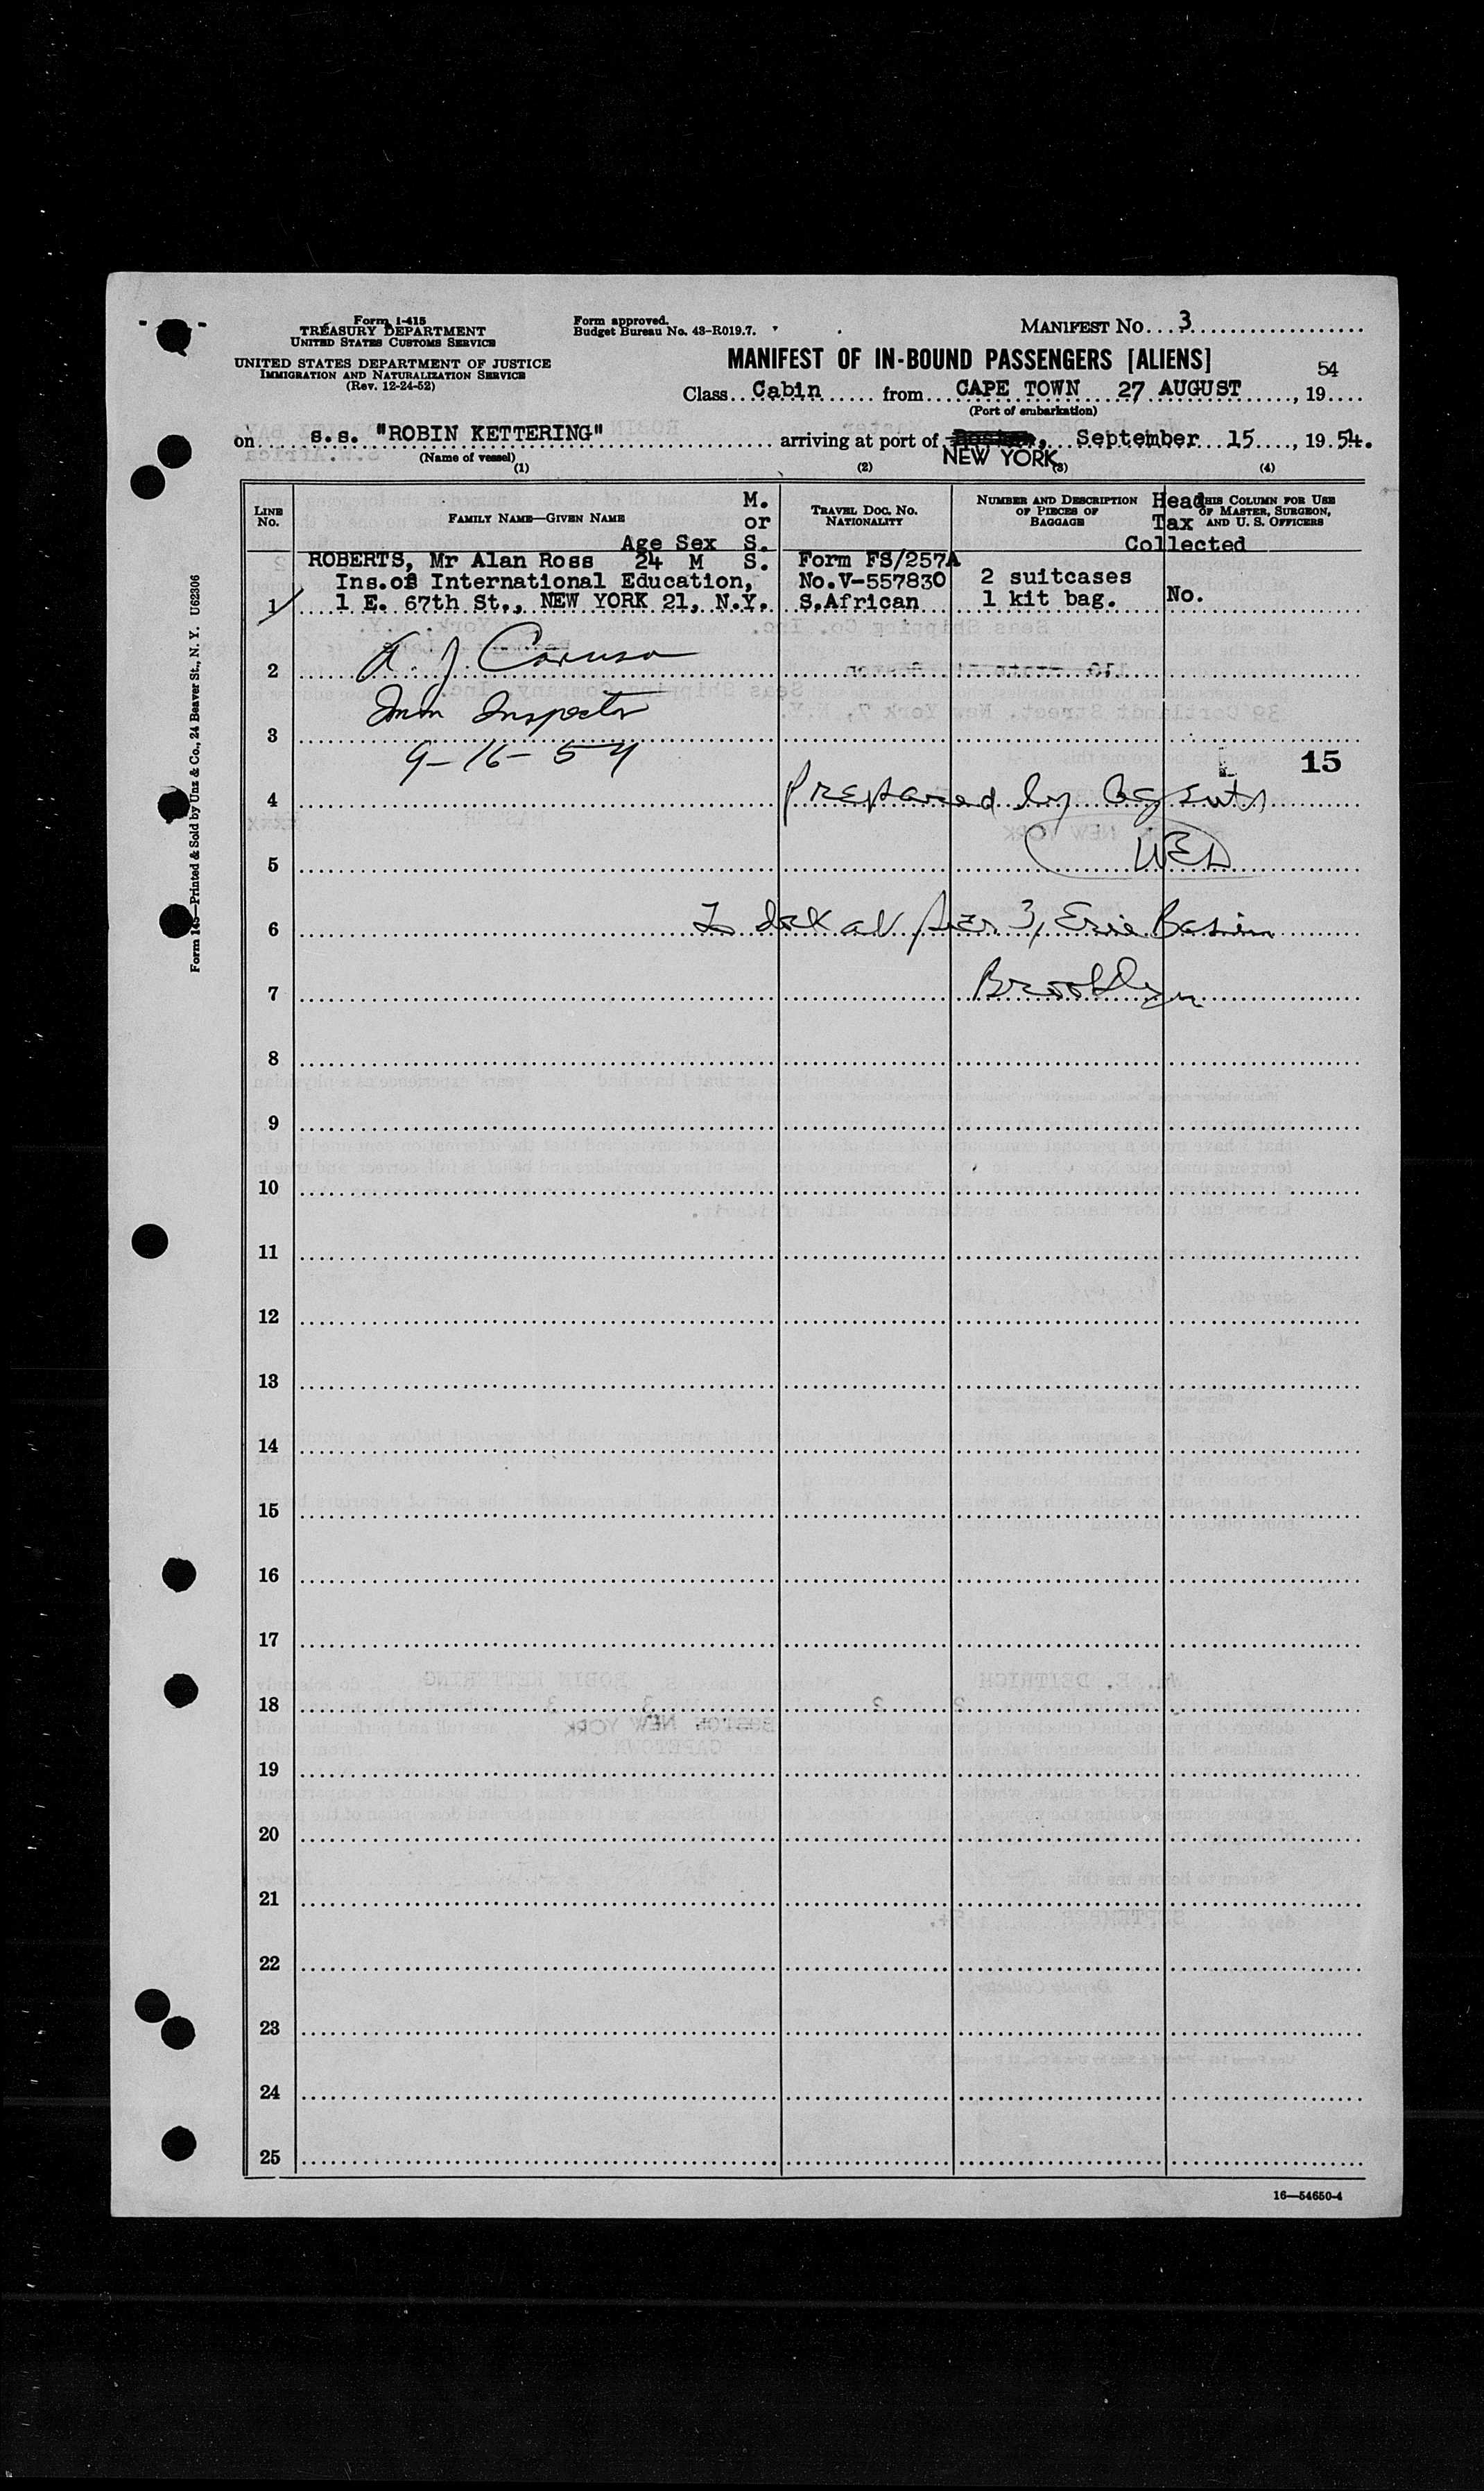 Form I-415
TREASURY DEPARTMENT
UNITED STATES CUSTOMS SERVICE
UNITED STATES DEPARTMENT OF JUSTICE
IMMIGRATION AND NATURALIZATION SERVICE
(Rev. 12-24-52)
Form approved.
Budget Bureau No. 43-R019.7.
MANIFEST NO. 3
MANIFEST OF IN-BOUND PASSENGERS [ALIENS]
Class Cabin from CAPE TOWN 27 AUGUST, 19 54
(Port of embarkation)
on s.s. "ROBIN KETTERING" arriving at port of Boston, September 15, 19 54.
(Name of vessel) NEW YORK
(1) (2) (3) (4)
LINE No. FAMILY NAME—GIVEN NAME Age Sex M. or S. TRAVEL DOC. NO. NATIONALITY NUMBER AND DESCRIPTION OF PIECES OF BAGGAGE Head Tax Collected THIS COLUMN FOR USE OF MASTER, SURGEON, AND U. S. OFFICERS
ROBERTS, Mr Alan Ross 24 M S. Form FS/257A
Ins.of International Education, No.V-557830 2 suitcases
1 1 E. 67th St., NEW YORK 21, N.Y. S.African 1 kit bag. No.
2 A. J. Caruso
Imm Inspector
3
9-16-54
15
4 Prepared by Agents
5 WED
6 To dock at Pier 3, Erie Basin
7 Brooklyn
8
9
10
11
12
13
14
15
16
17
18
19
20
21
22
23
24
25
16—54650-4
Form 145—Printed & Sold by Unz & Co., 24 Beaver St., N. Y. U62306